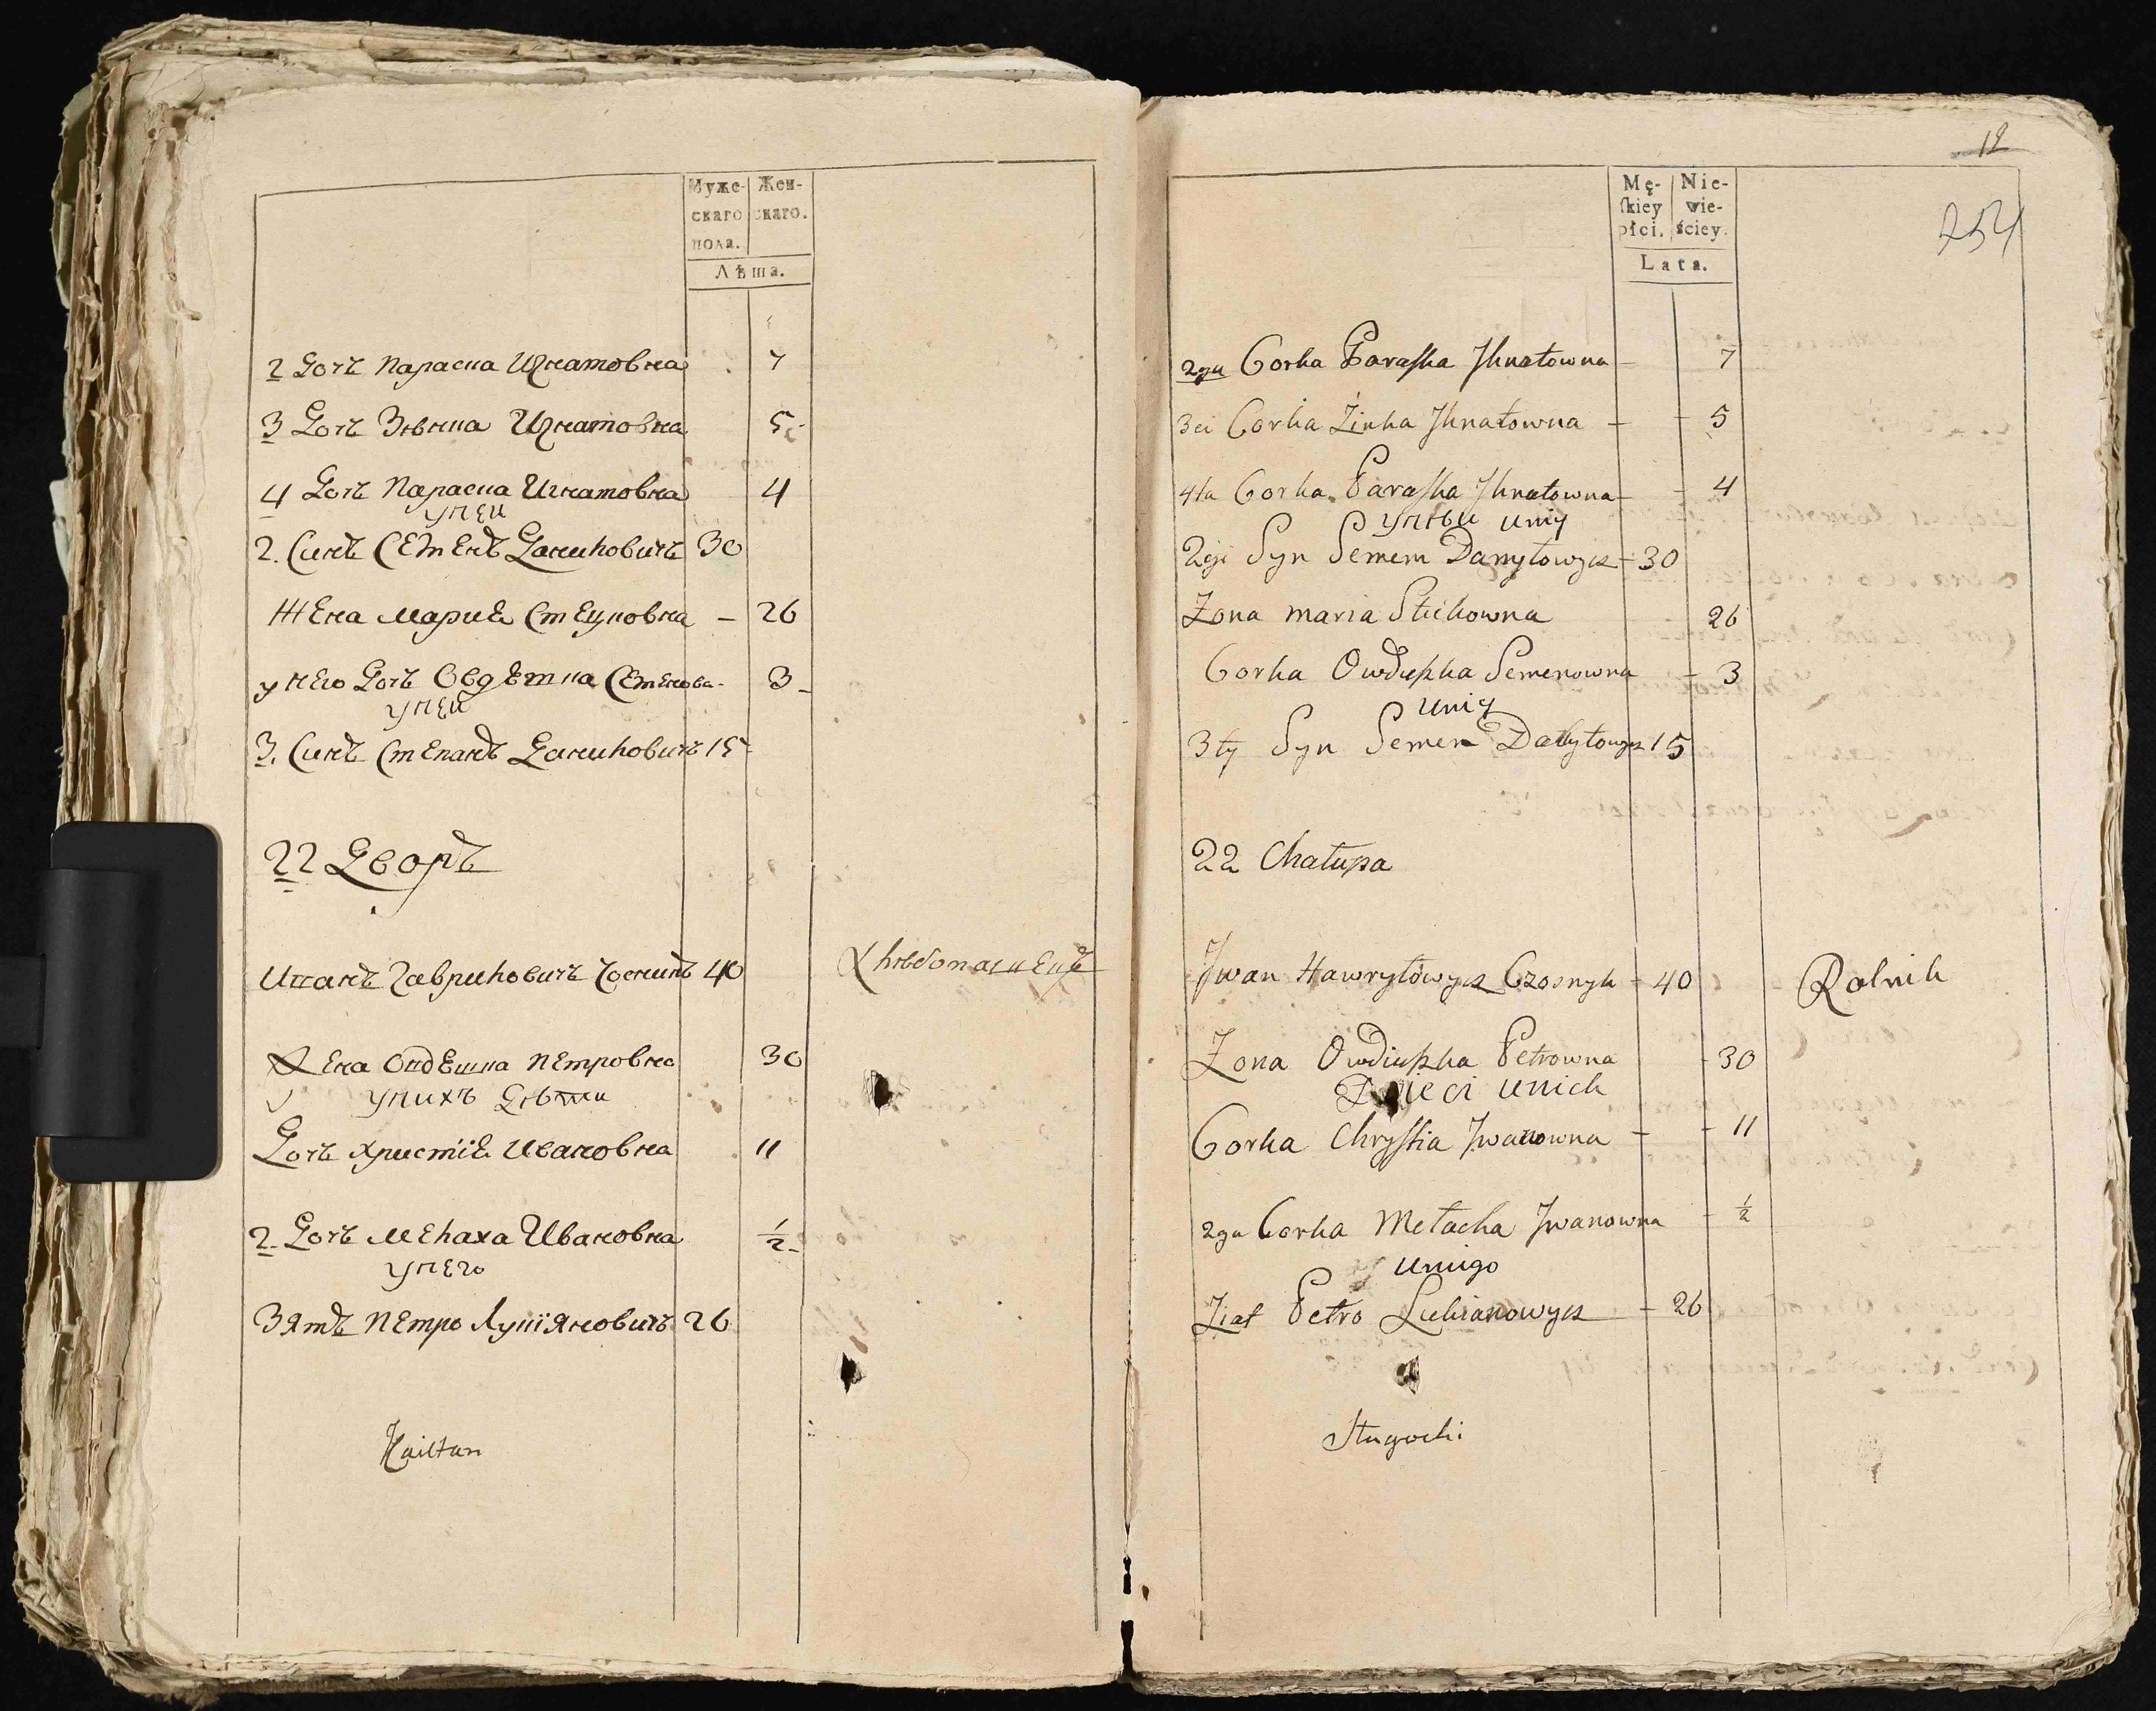 Муже-
скаго
пола.
Жен-
скаго.
Лѣта.
2 Дочъ Параска Игнатовна 7
3 Дочъ Зѣнка Игнатовна 5
4 Дочъ Параска Игнатовна 4
унеи
2. Синъ Семенъ Данилович 30
Жена Мария Стецковна 26
у него Дочъ Овдѣшка Семенова 3
унеи
3. Синъ Степанъ Даниловичъ 15
22 Дворъ
Иванъ Гавриловичъ Чосникъ 40 Хлѣбопашецъ
Жена Овдешка Петровна 30
унихъ Дѣти
Дочъ Христія Ивановна 11
2 Дочъ Мелаха Ивановна ½
унего
Зятъ Петро Лукіяновичъ 26
Kailtan
12
254
Mę-
ſkiey
płci.
Nie-
wie-
ściey.
Lata.
2ga Corka Paraſka Ihnatowna 7
3ci Corka Zinka Ihnatowna 5
4ta Corka Paraſka Ihnatowna 4
2gi Syn Semem Danyłowycz 30
Zona maria Stećkowna 26
Corka Owdiuszka Semenowna 3
uniy
3ty Syn Semen Danyłowycz 15
22 Chałupa
Iwan Hawryłowycz Czosnyk 40 Rolnik
Zona Owdiuszka Petrowna 30
Dzieci unich
Corka Chryſtia Iwanowna 11
2ga Corka Mełacha Iwanowna ½
uniigo
Ziat Petro Lukianowycz 26